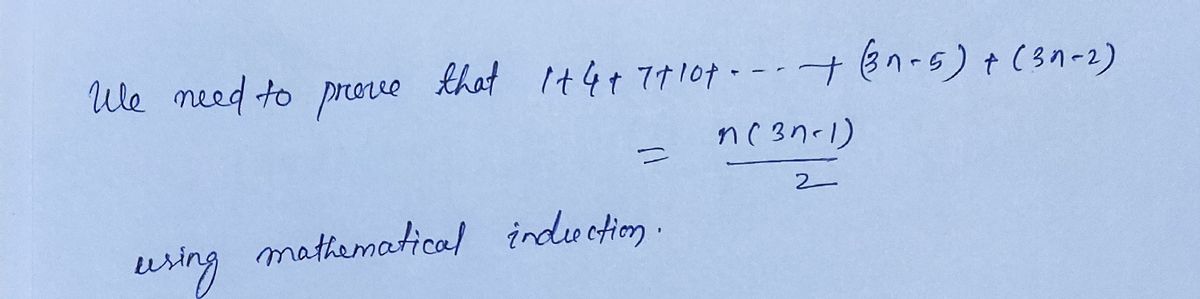 We need to prove that 1+4+7+10+----+(3n-5)+(3n-2)
= n(3n-1)
2
using mathematical induction.